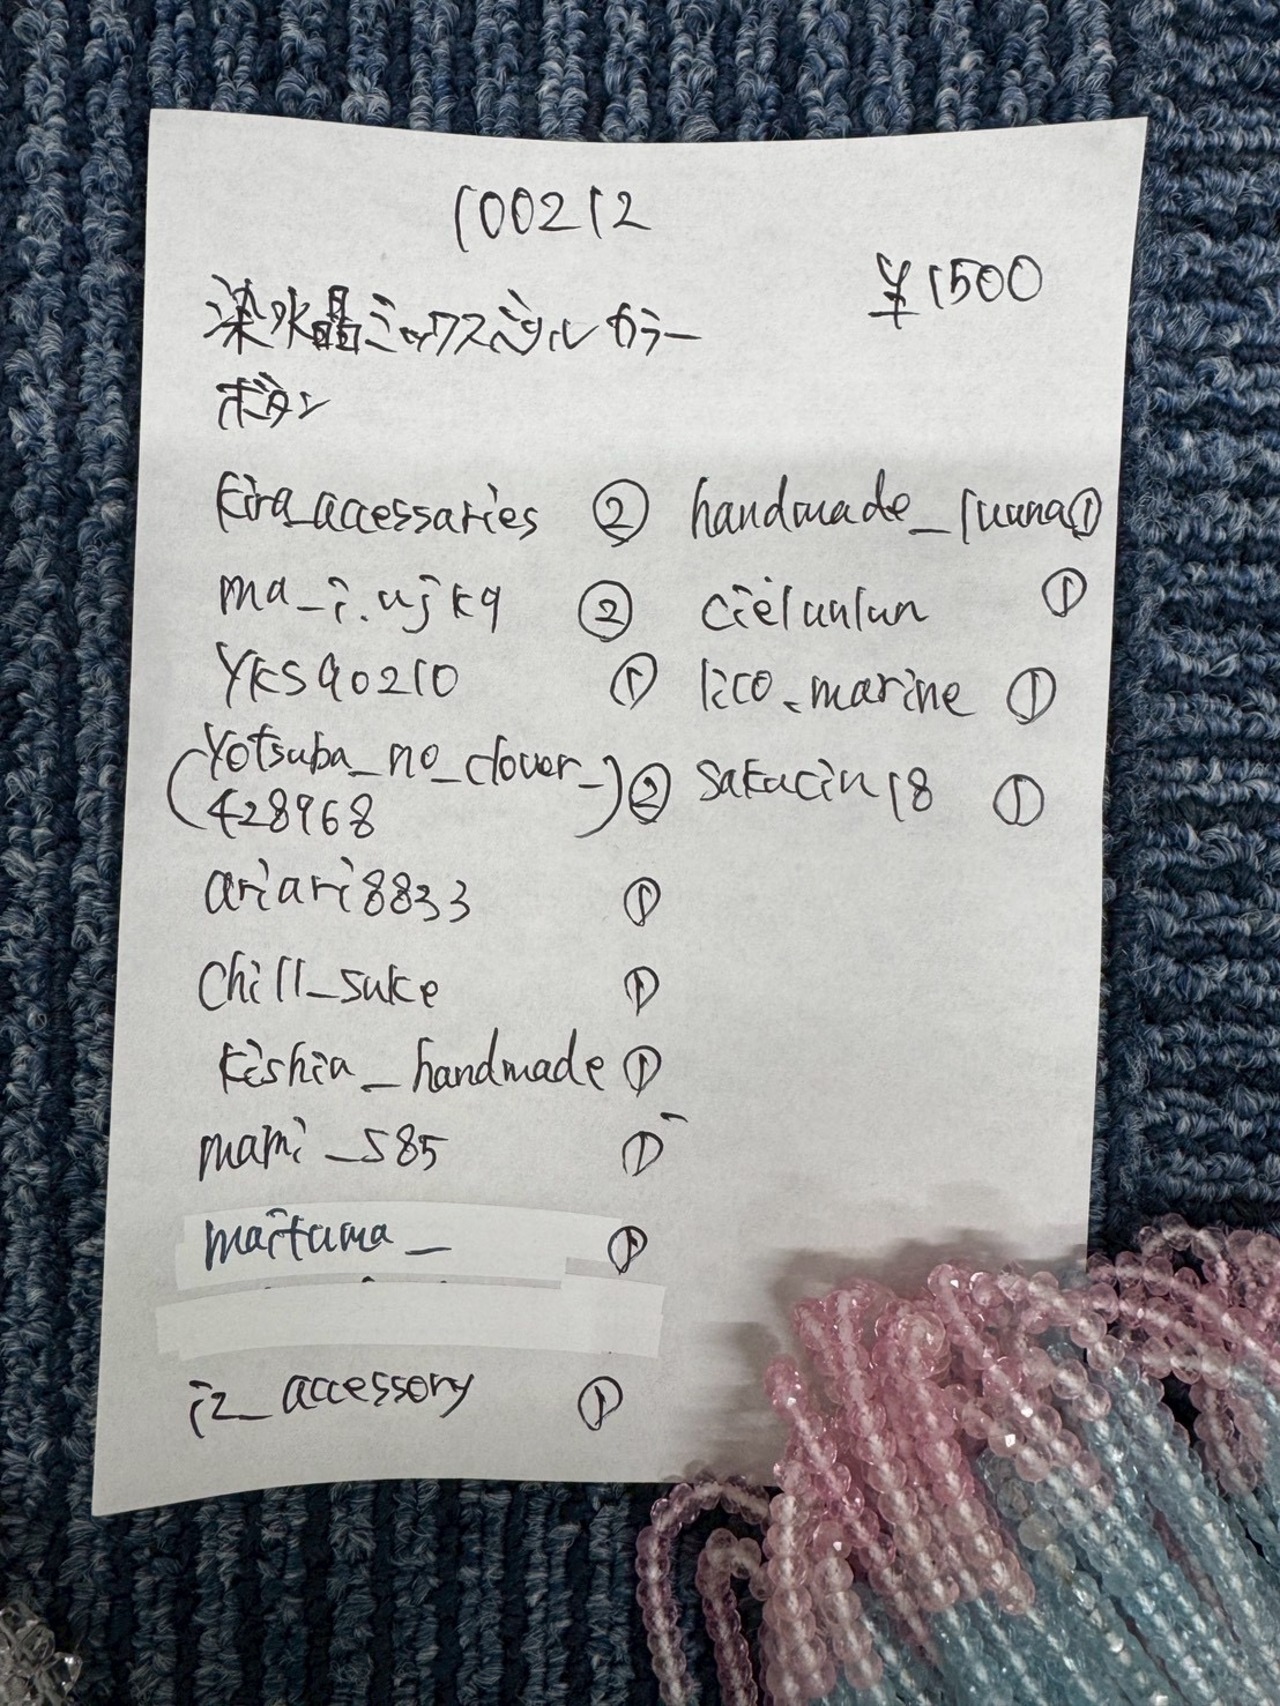 100212
¥1500
染水晶ミックスペールカラー
ボタン
kira_accessaries ②
ma_i.ujk9 ②
YKS90210 ①
(yotsuba_no_clover_
428968) ②
ariari8833 ①
chill_suke ①
kishia_handmade ①
mami_s85 ①
maituma_ ①
iz_accessory ①
handmade_luuna ①
cielunlun ①
lico_marine ①
sakucin18 ①